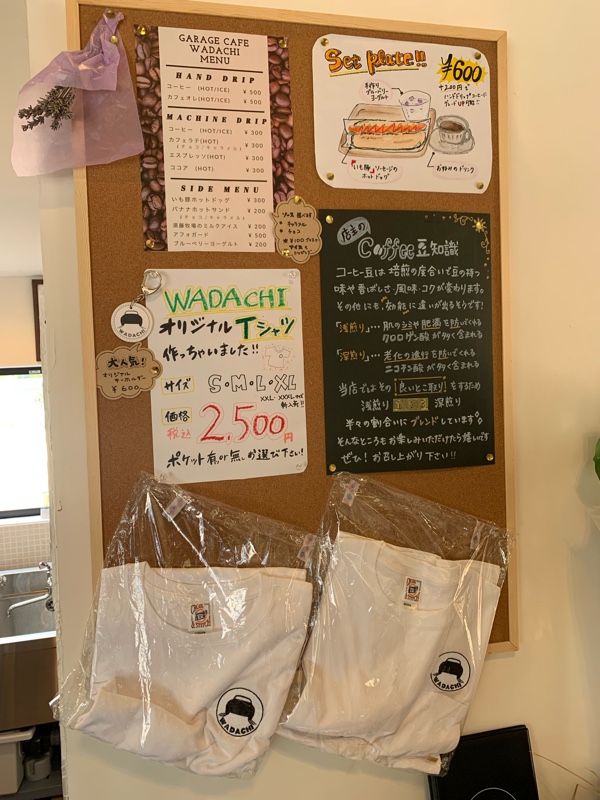 GARAGE CAFE
WADACHI
MENU
HAND DRIP
コーヒー (HOT/ICE) ¥ 500
カフェオレ(HOT/ICE) ¥ 500
MACHINE DRIP
コーヒー (HOT/ICE) ¥ 300
カフェラテ(HOT) ¥ 300
(チョコ/キャラメル)
エスプレッソ(HOT) ¥ 300
ココア (HOT) ¥ 300
SIDE MENU
いも豚ホットドッグ ¥ 300
バナナホットサンド ¥ 200
(チョコ/キャラメル)
須藤牧場のミルクアイス ¥ 200
アフォガード ¥ 500
ブルーベリーヨーグルト ¥ 200
ソース選べます
キャラメル
チョコ
¥100プラスで
アイスも
Set plate!!
¥600
+200円で
ハンドドリップコーヒーに
グレードUP可能!!
手作り
ブルーベリー
ヨーグルト
「いも豚」ソーセージの
ホットドッグ
お好みのドリンク
店主の
Coffee豆知識
コーヒー豆は焙煎の度合いで豆の持つ
味や香ばしさ・風味・コクが変わります。
その他にも、効能に違いが出るそうです!
「浅煎り」…肌のシミや肥満を防いでくれる
クロロゲン酸が多く含まれる
「深煎り」…老化の進行を防いでくれる
ニコチン酸が多く含まれる
当店ではその「良いとこ取り!」をするため
浅煎り 深煎り
半々の割合いにブレンドしています
そんなところもお楽しみいただけたら嬉しいです
ぜひ!お召し上がり下さい!!
WADACHI
大人気!
オリジナル
キーホルダー
¥600
WADACHI
オリジナルTシャツ
作っちゃいました!!
サイズ S・M・L・XL
XXL・XXXLサイズ
新入荷!!
価格
税込 2,500円
ポケット有or無しお選び下さい!
WADACHI
WADACHI